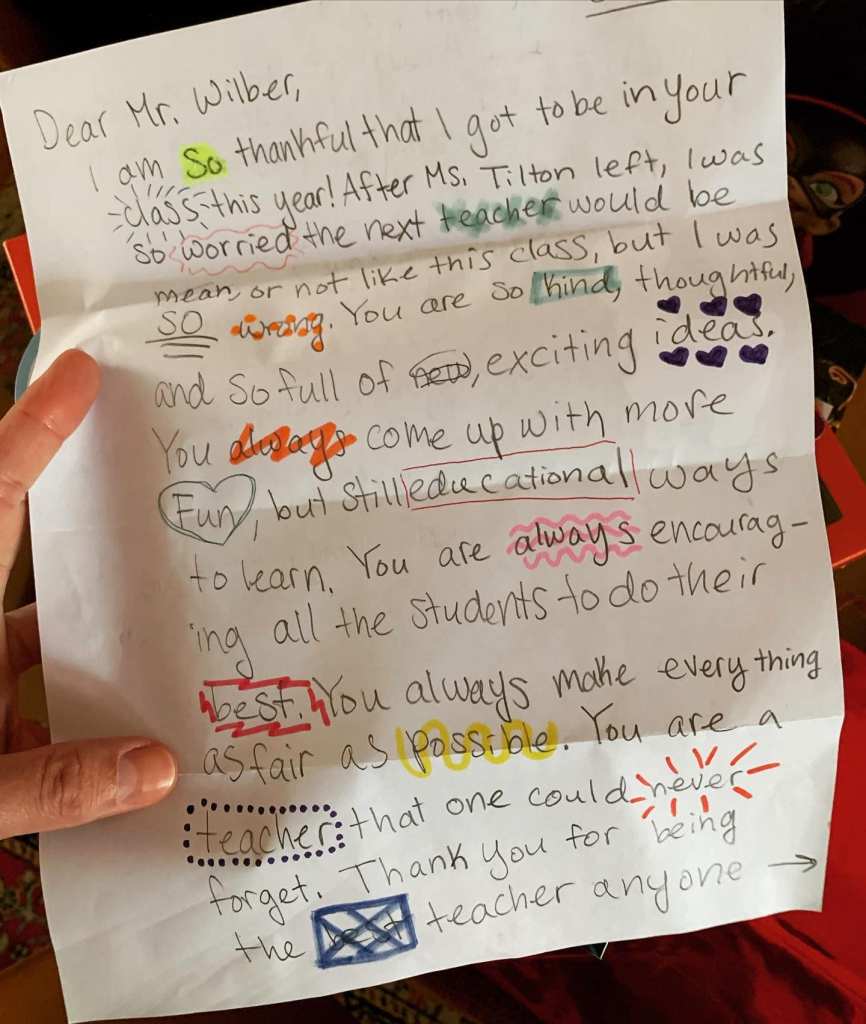 Dear Mr. Wilber,
I am So thankful that I got to be in your
class this year! After Ms. Tilton left, I was
so worried the next teacher would be
mean or not like this class, but I was
SO wrong. You are so kind, thoughtful,
and so full of new, exciting ideas.
You always come up with more
Fun, but still educational ways
to learn. You are always encourag-
ing all the students to do their
best. You always make everything
as fair as possible. You are a
teacher that one could never
forget. Thank you for being
the best teacher anyone →